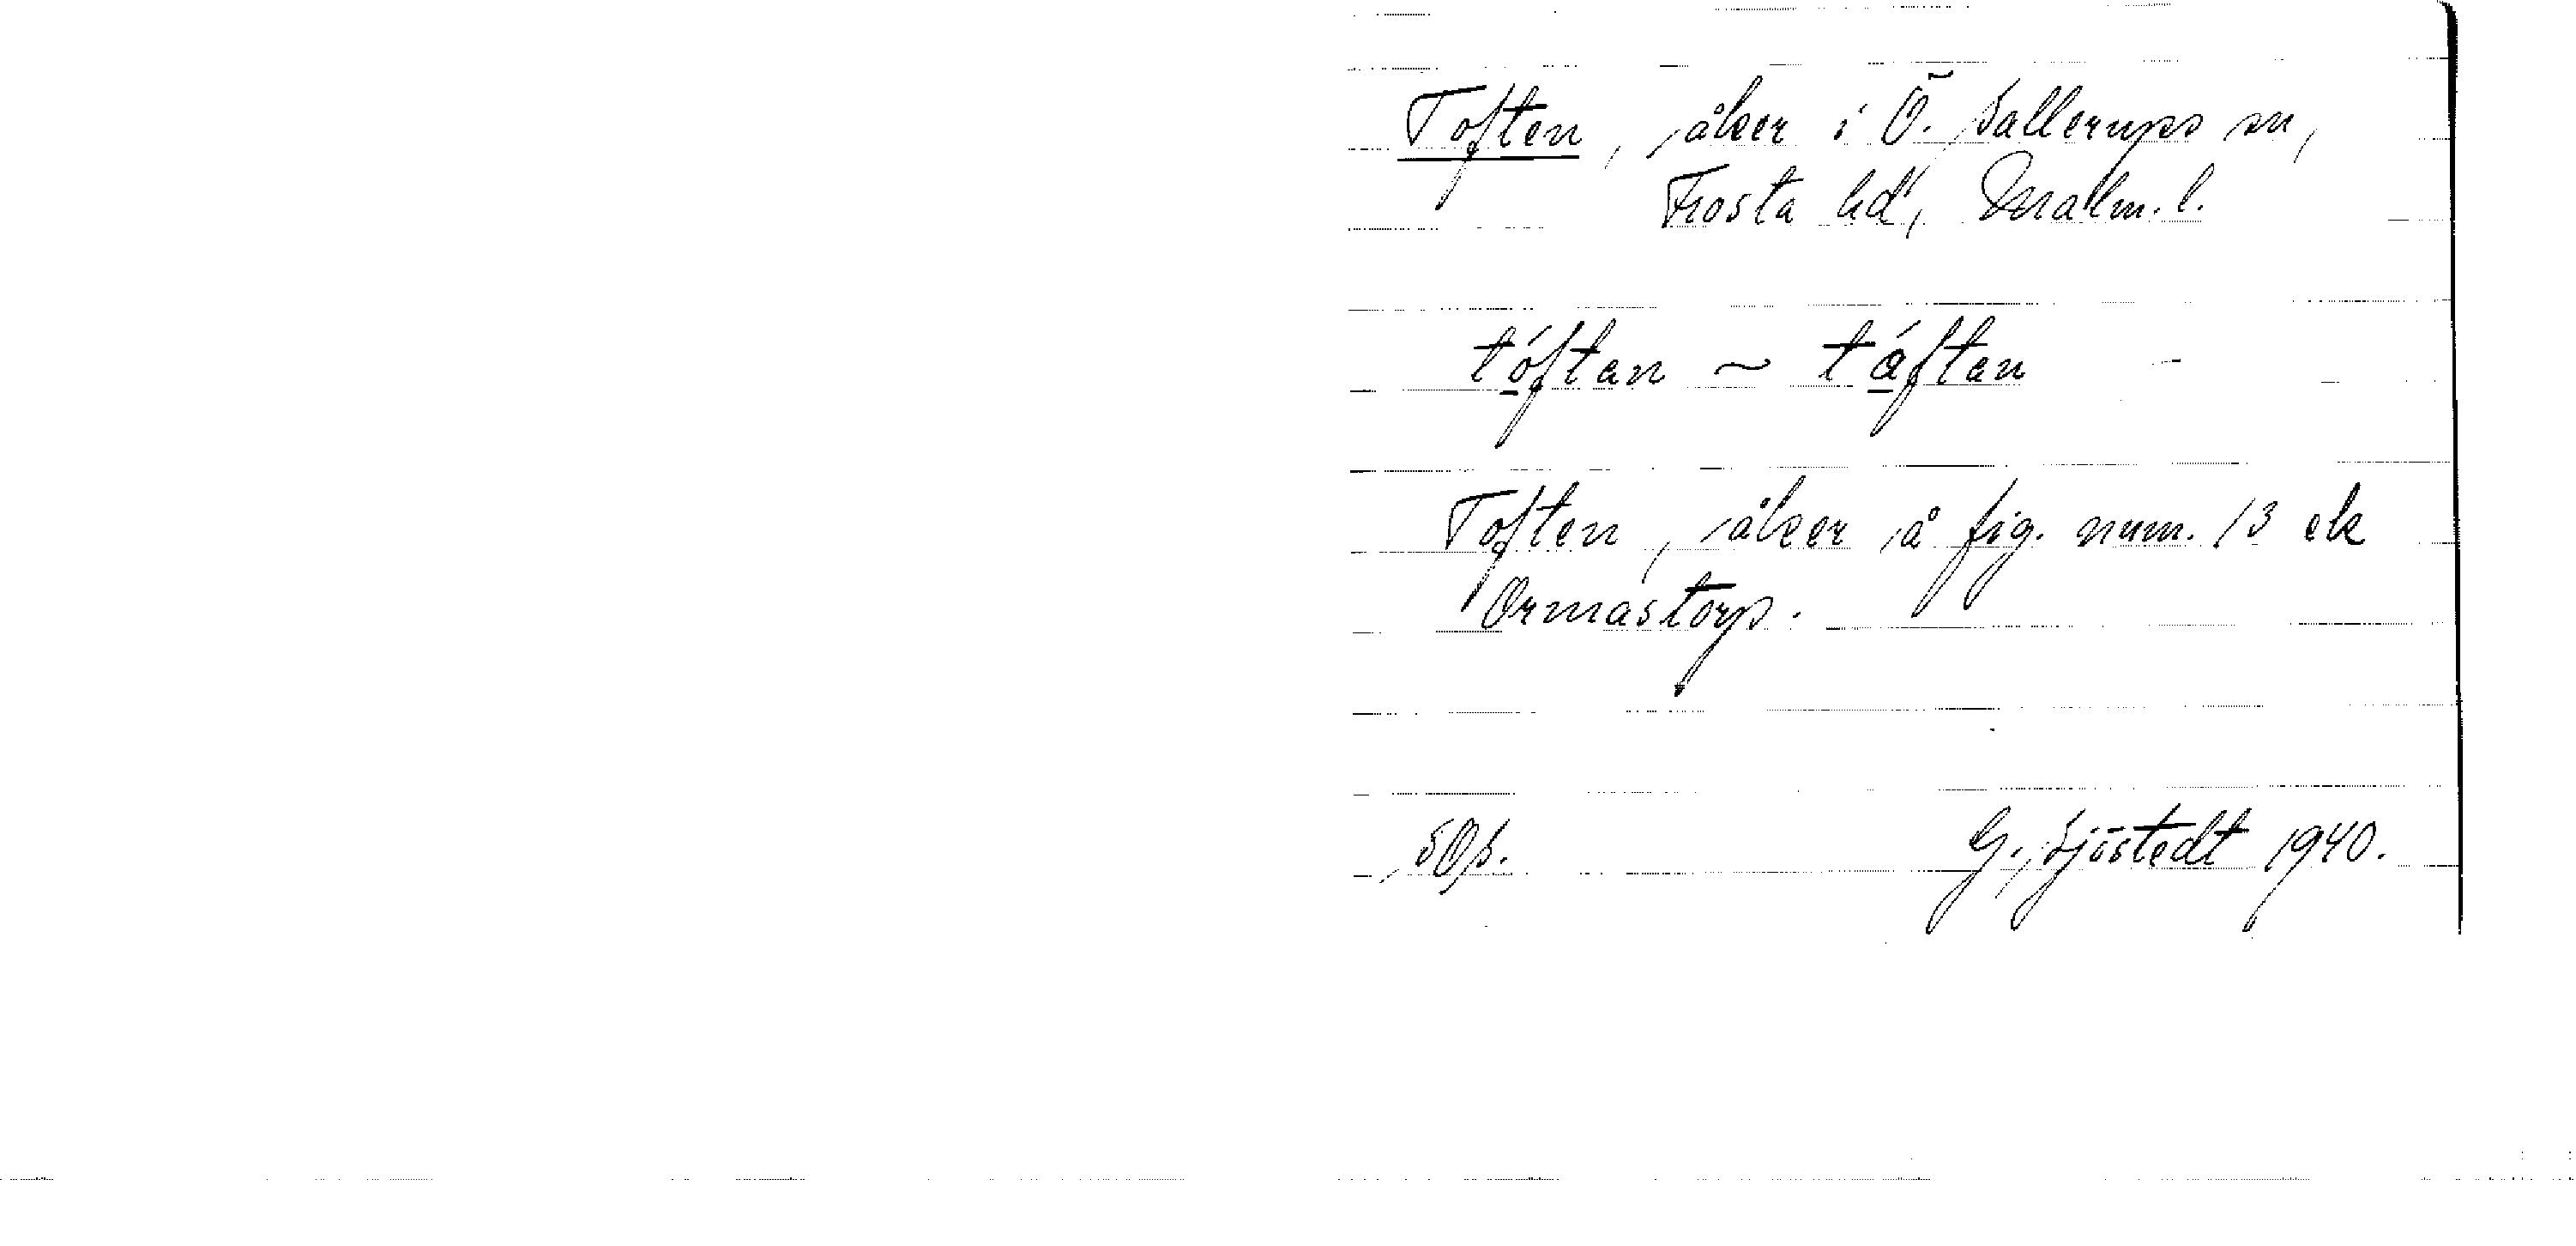 Toften, åker i Ö. Sallerups sn,
Frosta hd, Malm. l.
tóftan ~ táftan
Toften, åker å fig. num. 13 ek
Ormastorp.
SOp.
G. Sjöstedt 1940.